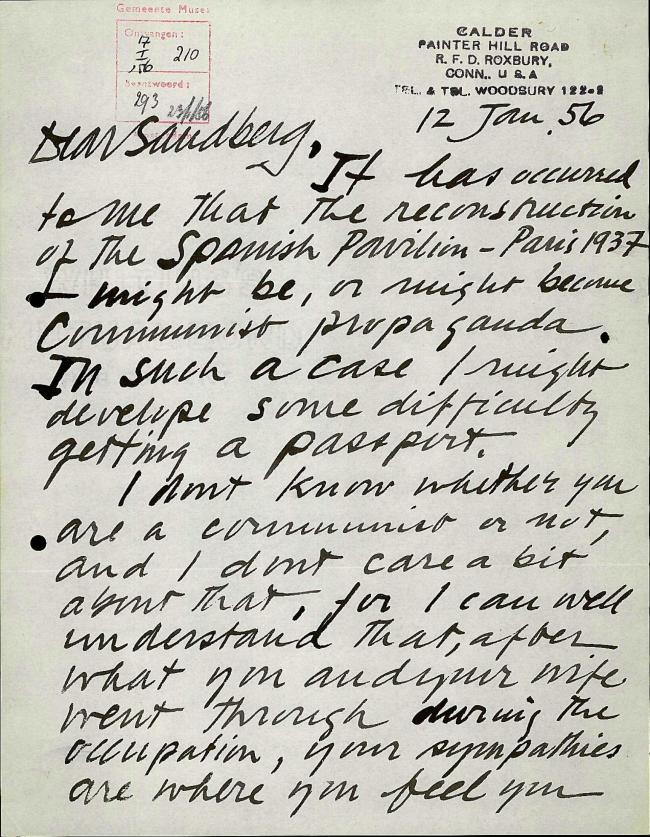 Gemeente Muse
Ontvangen :
17
I
'56
210
Beantwoord :
293
23/1/56
CALDER
PAINTER HILL ROAD
R. F. D. ROXBURY,
CONN., U S A
TEL. & TEL. WOODBURY 122-2
12 Jan. 56
Dear Sandberg,
It has occurred
to me that the reconstruction
of the Spanish Pavilion – Paris 1937
– might be, or might become
Communist propaganda.
In such a case I might
develope some difficulty
getting a passport.
I dont know whether you
are a communist or not,
and I dont care a bit
about that, for I can well
understand that, after
what you and your wife
went through during the
occupation, your sympathies
are where you feel you